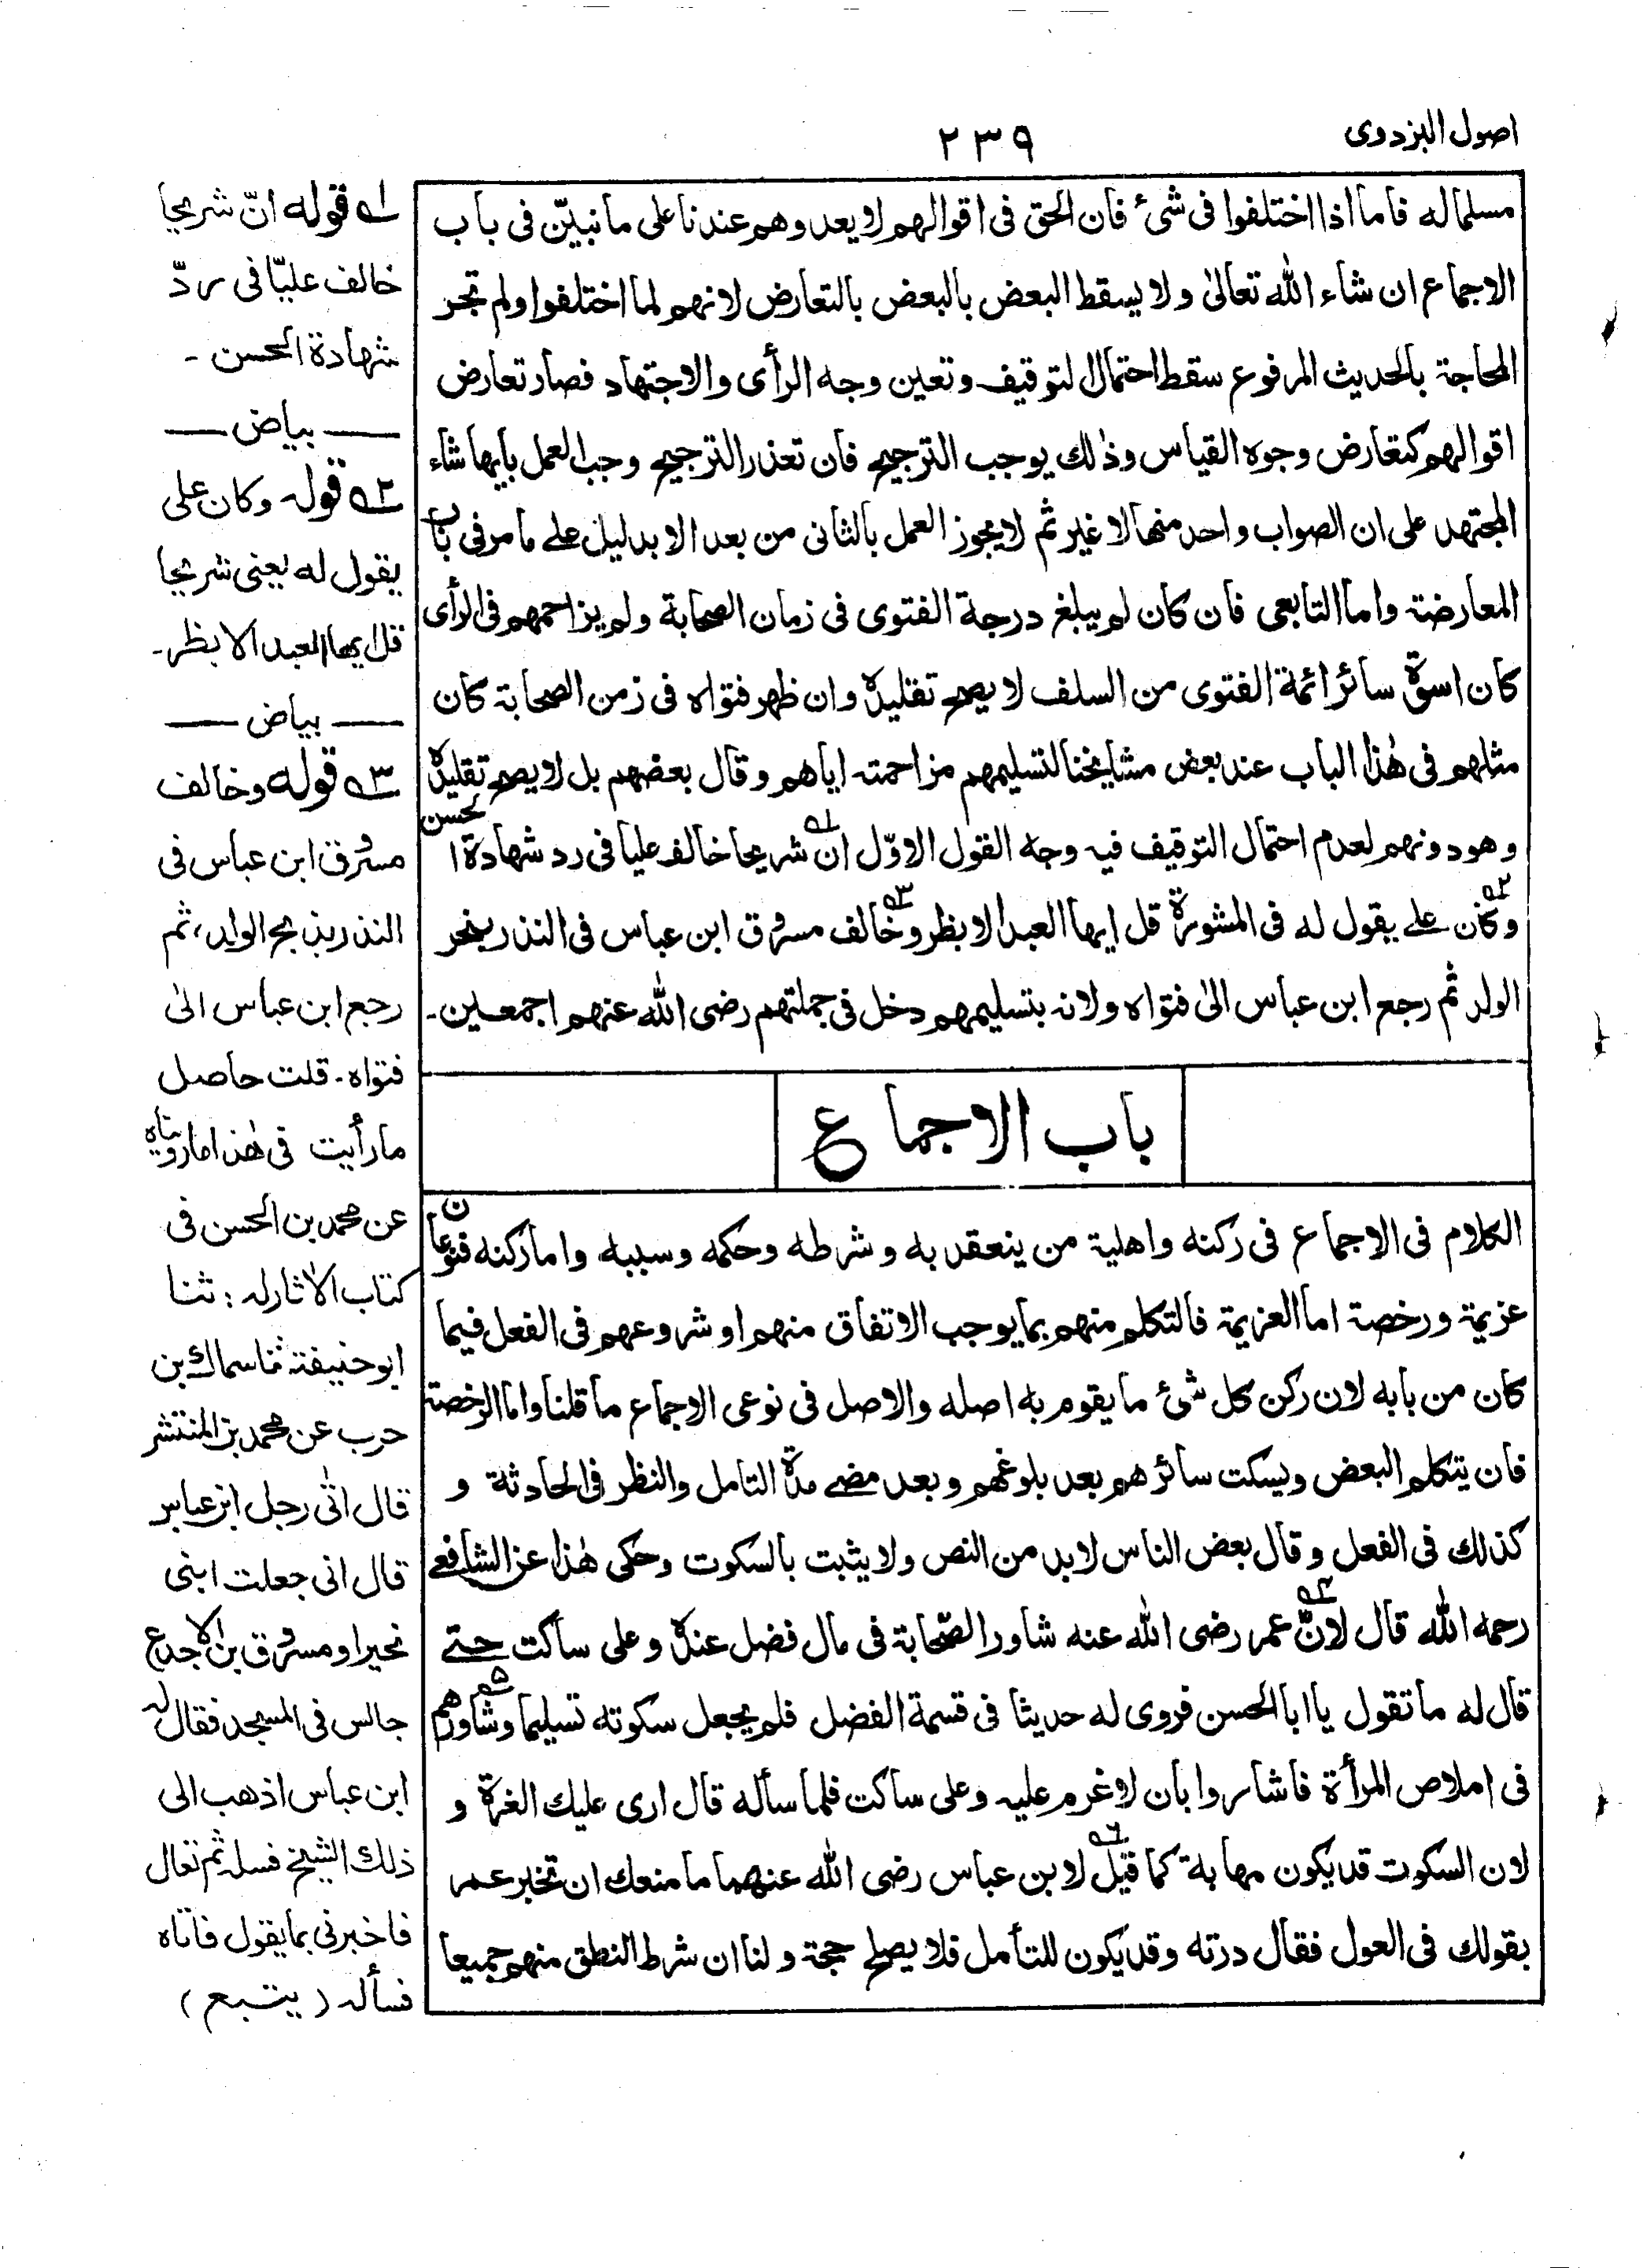 اصول البزدوی
۲۳۹
مسلما له فاما اذا اختلفوا فی شیٔ فان الحق فی اقوالهم لا یعدوهم عندنا علی ما نبیّن فی باب
الاجماع ان شاء اللّٰه تعالیٰ ولا یسقط البعض بالبعض بالتعارض لانهم لما اختلفوا ولم تجر
المحاجة بالحدیث المرفوع سقط احتمال التوقیف وتعین وجه الرأی والاجتهاد فصار تعارض
اقوالهم کتعارض وجوه القیاس وذٰلك یوجب الترجیح فان تعذر الترجیح وجب العمل بأیها شاء
المجتهد علی ان الصواب واحد منها لا غیر ثم لا یجوز العمل بالثانی من بعد الا بدلیل علی ما مر فی باب
المعارضة واما التابعی فان کان لم یبلغ درجة الفتوی فی زمان الصحابة ولم یزاحمهم فی الرأی
کان اسوة سائر ائمة الفتوی من السلف لا یصح تقلیدہ وان ظهر فتواه فی زمن الصحابة کان
مثلهم فی هٰذا الباب عند بعض مشایخنا لتسلیمهم مزاحمته ایاهم وقال بعضهم بل لا یصح تقلیدہ
وهو دونهم لعدم احتمال التوقیف فیه وجه القول الاوّل ان۱ شریحا خالف علیا فی رد شهادة الحسن
وکان۲ علی یقول له فی المشورة قل ایها العبد الابظر وخالف۳ مسروق ابن عباس فی النذر بنحر
الولد ثم رجع ابن عباس الیٰ فتواه ولانه بتسلیمهم دخل فی جملتهم رضی اللّٰه عنهم اجمعین۔
باب الاجماع
الکلام فی الاجماع فی رکنه واهلیة من ینعقد به وشرطه وحکمه وسببه واما رکنه فنوعان
عزیمة ورخصة اما العزیمة فالتکلم منهم بما یوجب الاتفاق منهم او شروعهم فی الفعل فیما
کان من بابه لان رکن کل شیٔ ما یقوم به اصله والاصل فی نوعی الاجماع ما قلنا واما الرخصة
فان یتکلم البعض ویسکت سائرهم بعد بلوغهم وبعد مضی مدة التامل والنظر فی الحادثة و
کذلك فی الفعل وقال بعض الناس لابد من النص ولا یثبت بالسکوت وحکی هٰذا عن الشافعی
رحمه اللّٰه قال لانّ۴ عمر رضی اللّٰه عنه شاور الصّحابة فی مال فضل عندہ وعلی ساکت حتی
قال له ما تقول یا ابا الحسن فروی له حدیثا فی قسمة الفضل فلم یجعل سکوته تسلیما وشاورهم۵
فی املاص المرأة فاشاروا بان لا غرم علیه وعلی ساکت فلما سأله قال اری علیك الغرة و
لان السکوت قد یکون مهابة کما قیل۶ لابن عباس رضی اللّٰه عنهما ما منعك ان تخبر عمر
بقولك فی العول فقال درته وقد یکون للتأمل فلا یصلح حجة ولنا ان شرط النطق منهم جمیعا
۱ قوله انّ شریحا
خالف علیّا فی ردّ
شهادة الحسن۔
—— بیاض ——
۲ قوله وکان علی
یقول له یعنی شریحا
قل ایها العبد الابظر۔
—— بیاض ——
۳ قوله وخالف
مسروق ابن عباس فی
النذر بذبح الولد، ثم
رجع ابن عباس الیٰ
فتواه۔ قلت حاصل
ما رأیت فی هٰذا ما رویناه
عن محمد بن الحسن فی
کتاب الاٰثار له: ثنا
ابو حنیفة ثنا سماك بن
حرب عن محمد بن المنتشر
قال اتٰی رجل ابن عباس
قال انی جعلت ابنی
نحیرا ومسروق بن الاجدع
جالس فی المسجد فقال له
ابن عباس اذهب الی
ذلك الشیخ فسله ثم تعال
فاخبرنی بما یقول فاتاه
فسأله (یتبع)